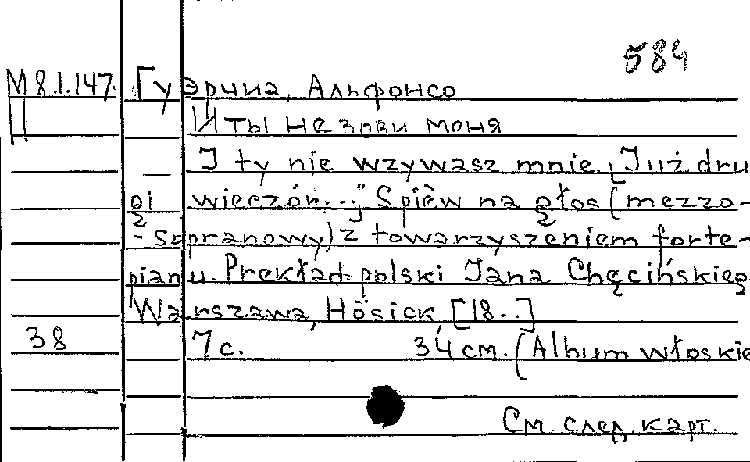 584
М 8.I.147. Гуэрчиа, Альфонсо
Ц И ты не зови меня
I ty nie wzywasz mnie. „Już dru
gi wieczór...” Spiew na głos (mezzo-
- sopranowy) z towarzyszeniem forte-
pianu. Prekład polski Jana Chęcińskieg
Warszawa, Hösick, [18..]
38 7 с. 34 см. (Album włoskie
См. след. карт.